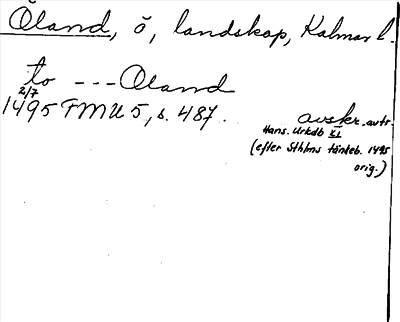 Öland, ö, landskap, Kalmar l.
to --- Oland
2/7
1495 FMU 5, s. 487. avskr. avtr.
Hans. Urkdb XI
(efter Sthlms tänkeb. 1495
orig.)